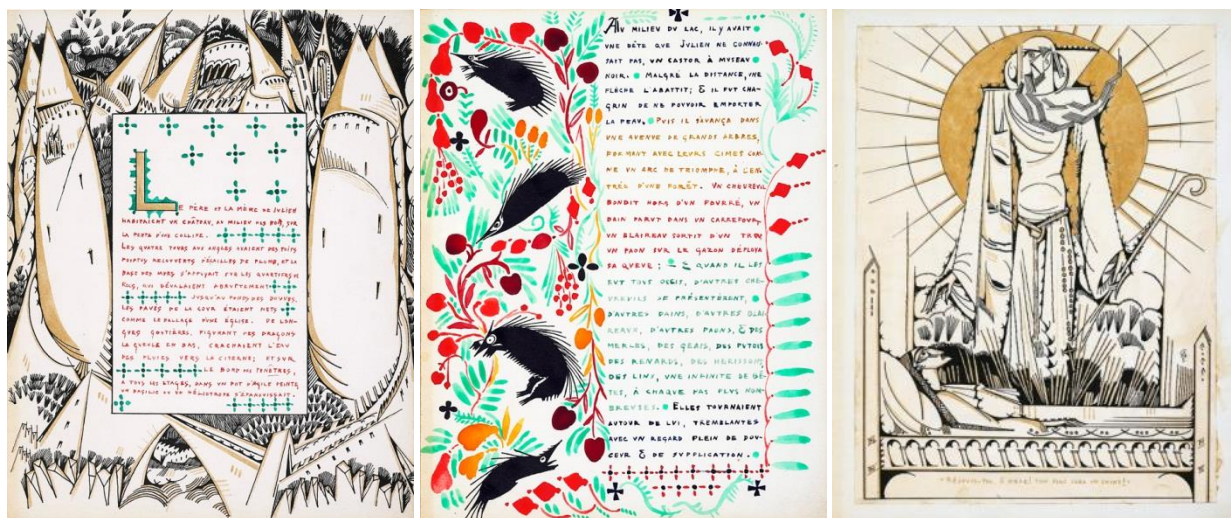 LE PÈRE ET LA MÈRE DE JULIEN
HABITAIENT UN CHÂTEAU, AU MILIEU DES BOIS, SUR
LA PENTE D'UNE COLLINE.
LES QUATRE TOURS AUX ANGLES AVAIENT DES TOITS
POINTUS RECOUVERTS D'ÉCAILLES DE PLOMB, ET LA
BASE DES MURS S'APPUYAIT SUR LES QUARTIERS DE
ROCS, QUI DÉVALAIENT ABRUPTEMENT
JUSQU'AU FOND DES DOUVES.
LES PAVÉS DE LA COUR ÉTAIENT NETS
COMME LE DALLAGE D'UNE ÉGLISE. DE LON-
GUES GOUTIÈRES, FIGURANT DES DRAGONS
LA GUEULE EN BAS, CRACHAIENT L'EAU
DES PLUIES VERS LA CITERNE; ET SUR
LE BORD DES FENÊTRES,
À TOUS LES ÉTAGES, DANS UN POT D'ARGILE PEINTE,
UN BASILIC OU UN HÉLIOTROPE S'ÉPANOUISSAIT.
AU MILIEU DU LAC, IL Y AVAIT
UNE BÊTE QUE JULIEN NE CONNAIS-
SAIT PAS, UN CASTOR À MUSEAU
NOIR. MALGRÉ LA DISTANCE, UNE
FLÈCHE L'ABATTIT; & IL FUT CHA-
GRIN DE NE POUVOIR EMPORTER
LA PEAU. PUIS IL S'AVANÇA DANS
UNE AVENUE DE GRANDS ARBRES,
FORMANT AVEC LEURS CIMES COM-
ME UN ARC DE TRIOMPHE, À L'EN-
TRÉE D'UNE FORÊT. UN CHEVREUIL
BONDIT HORS D'UN FOURRÉ, UN
DAIM PARUT DANS UN CARREFOUR,
UN BLAIREAU SORTIT D'UN TROU
UN PAON SUR LE GAZON DÉPLOYA
SA QUEUE; & QUAND IL LES
EUT TOUS OCCIS, D'AUTRES CHE-
VREUILS SE PRÉSENTÈRENT,
D'AUTRES DAIMS, D'AUTRES BLAI-
REAUX, D'AUTRES PAONS, & DES
MERLES, DES GEAIS, DES PUTOIS
DES RENARDS, DES HÉRISSONS,
DES LINX, UNE INFINITÉ DE BÊ-
TES, À CHAQUE PAS PLUS NOM-
BREUSES. ELLES TOURNAIENT
AUTOUR DE LUI, TREMBLANTES
AVEC UN REGARD PLEIN DE DOU-
CEUR & DE SUPPLICATION.
"RÉJOUIS-TOI, Ô MÈRE! TON FILS SERA UN SAINT!"